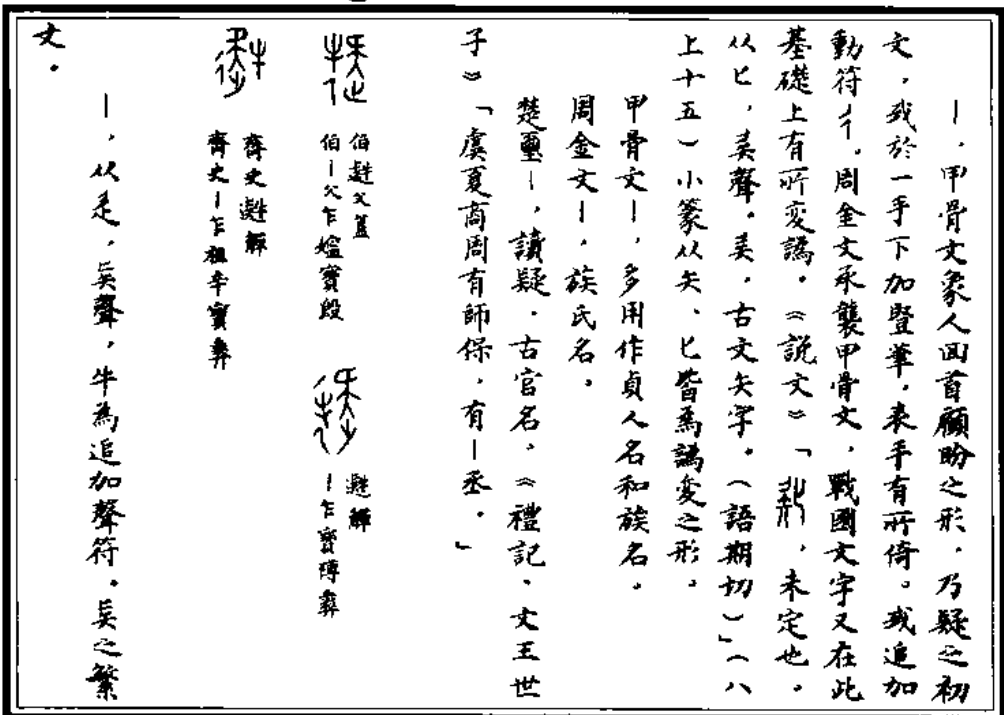 ｜，甲骨文象人回首顧盼之形，乃疑之初
文，或於一手下加豎筆，表手有所倚。或追加
動符彳。周金文承襲甲骨文，戰國文字又在此
基礎上有所变譌。《說文》「，未定也。
从匕，𠤕聲。𠤕，古文矢字。（語期切）」（八
上十五）小篆从矢、匕皆為譌变之形。
甲骨文｜，多用作貞人名和族名。
周金文｜，族氏名。
楚璽｜，讀疑。古官名。《禮記·文王世
子》「虞夏商周有師保，有｜丞。」
伯父蓋
伯｜父乍媼寶𣪘
觶
｜乍寶障彝
齊史觶
齊史｜乍祖辛寶彝
｜，从辵，𠤕聲，牛為追加聲符。𠤕之繁
文。